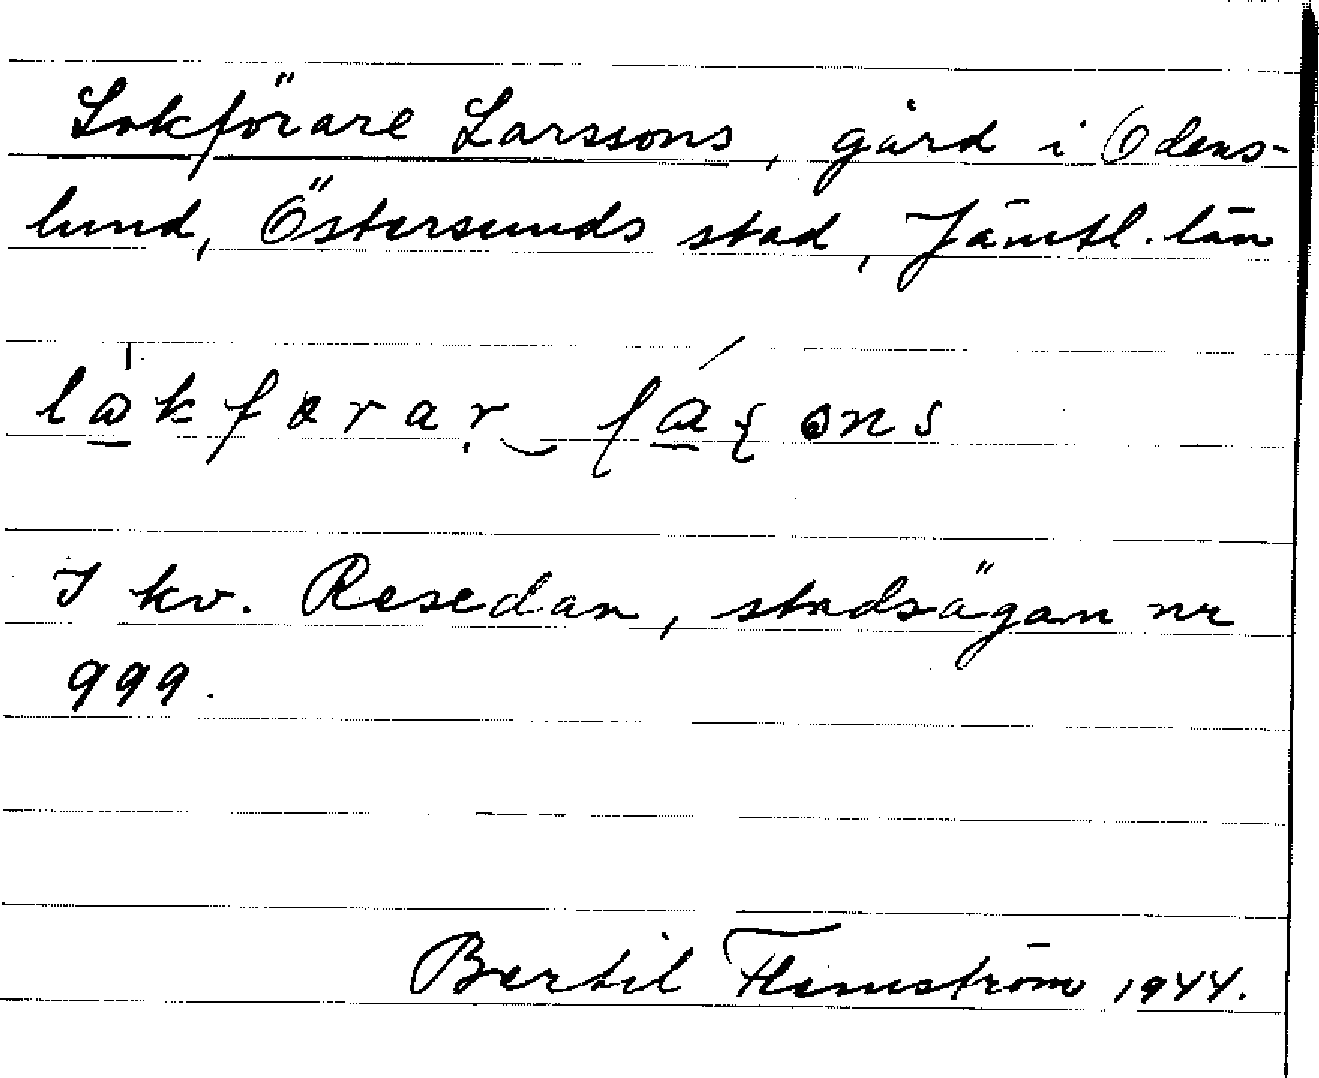 Lokförare Larssons, gård i Odens-
lund, Östersunds stad, Jämtl. län
I kv. Resedan, stadsägan nr
999.
Bertil Flemström 1944.